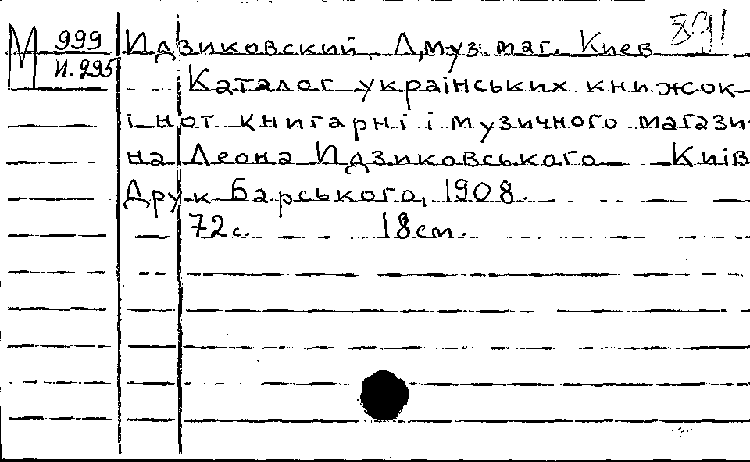 М 999 Идзиковский, Л, муз. маг. Киев 391
И.295 Каталог українських книжок
і нот книгарні і музичного магази-
на Леона Идзиковського Київ
Друк Барського, 1908.
72 с. 18 см.